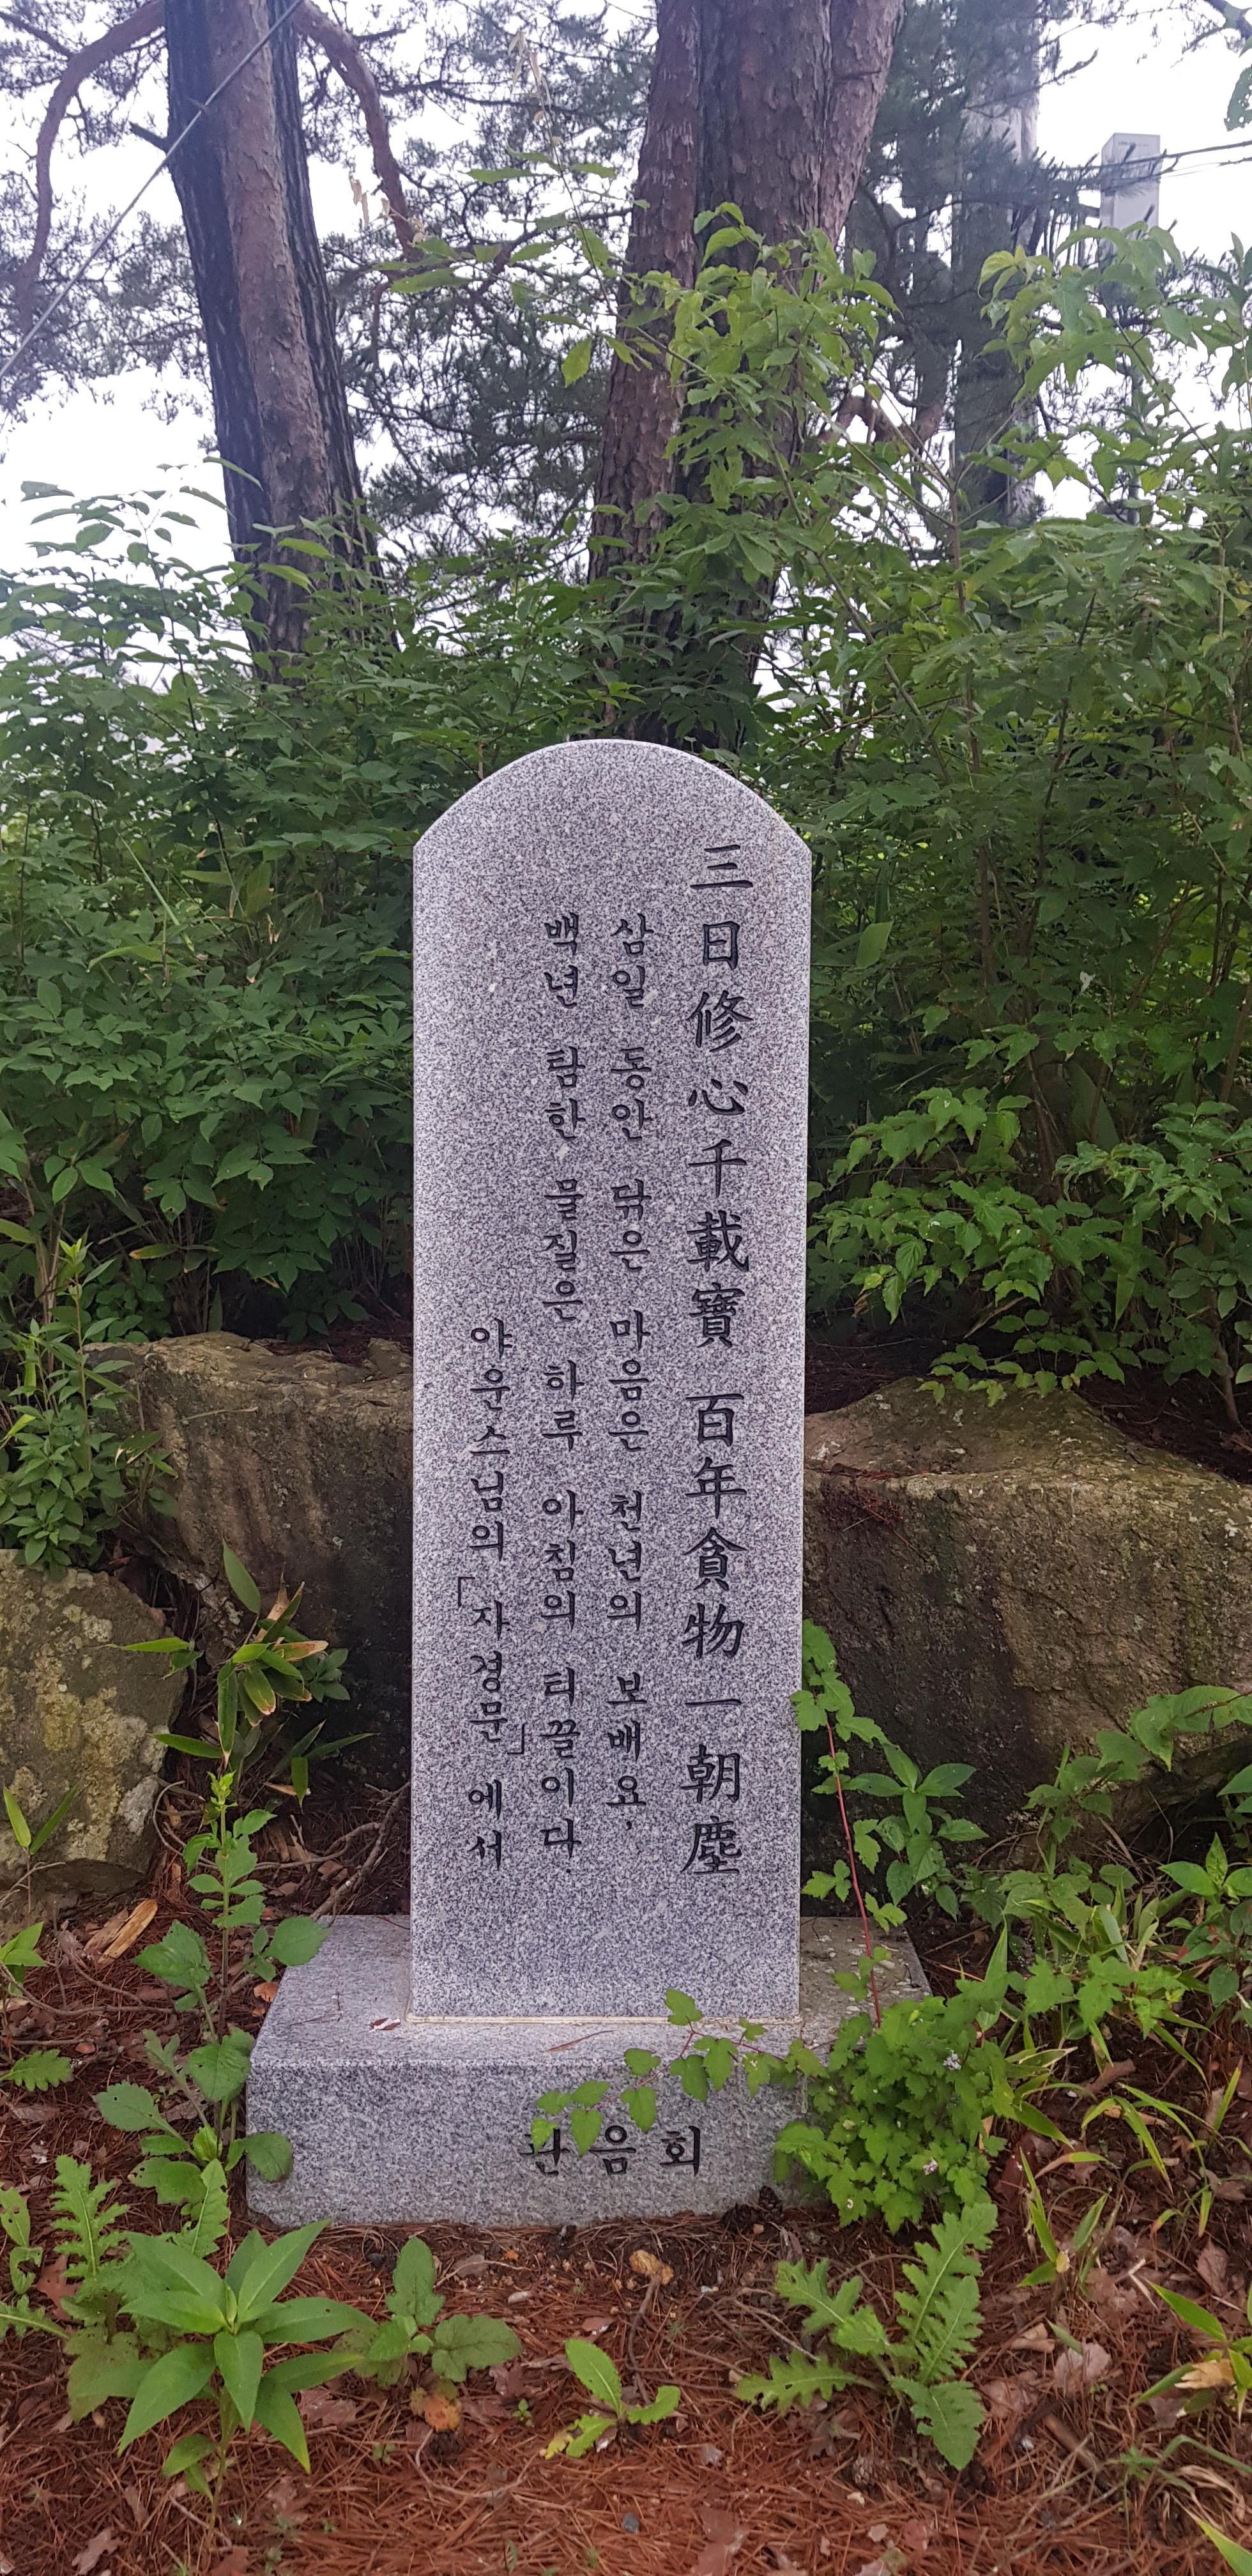 三日修心千載寶 百年貪物一朝塵
삼일 동안 닦은 마음은 천년의 보배요,
백년 탐한 물질은 하루 아침의 티끌이다.
야운스님의 「자경문」에서
관음회